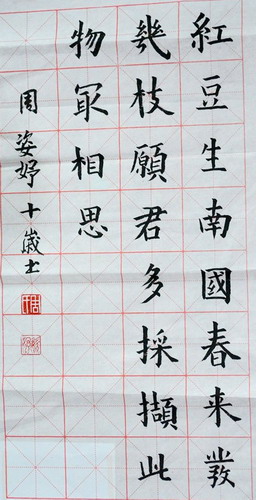 紅豆生南國春来發
幾枝願君多採擷此
物冣相思
周姿妤十歲士